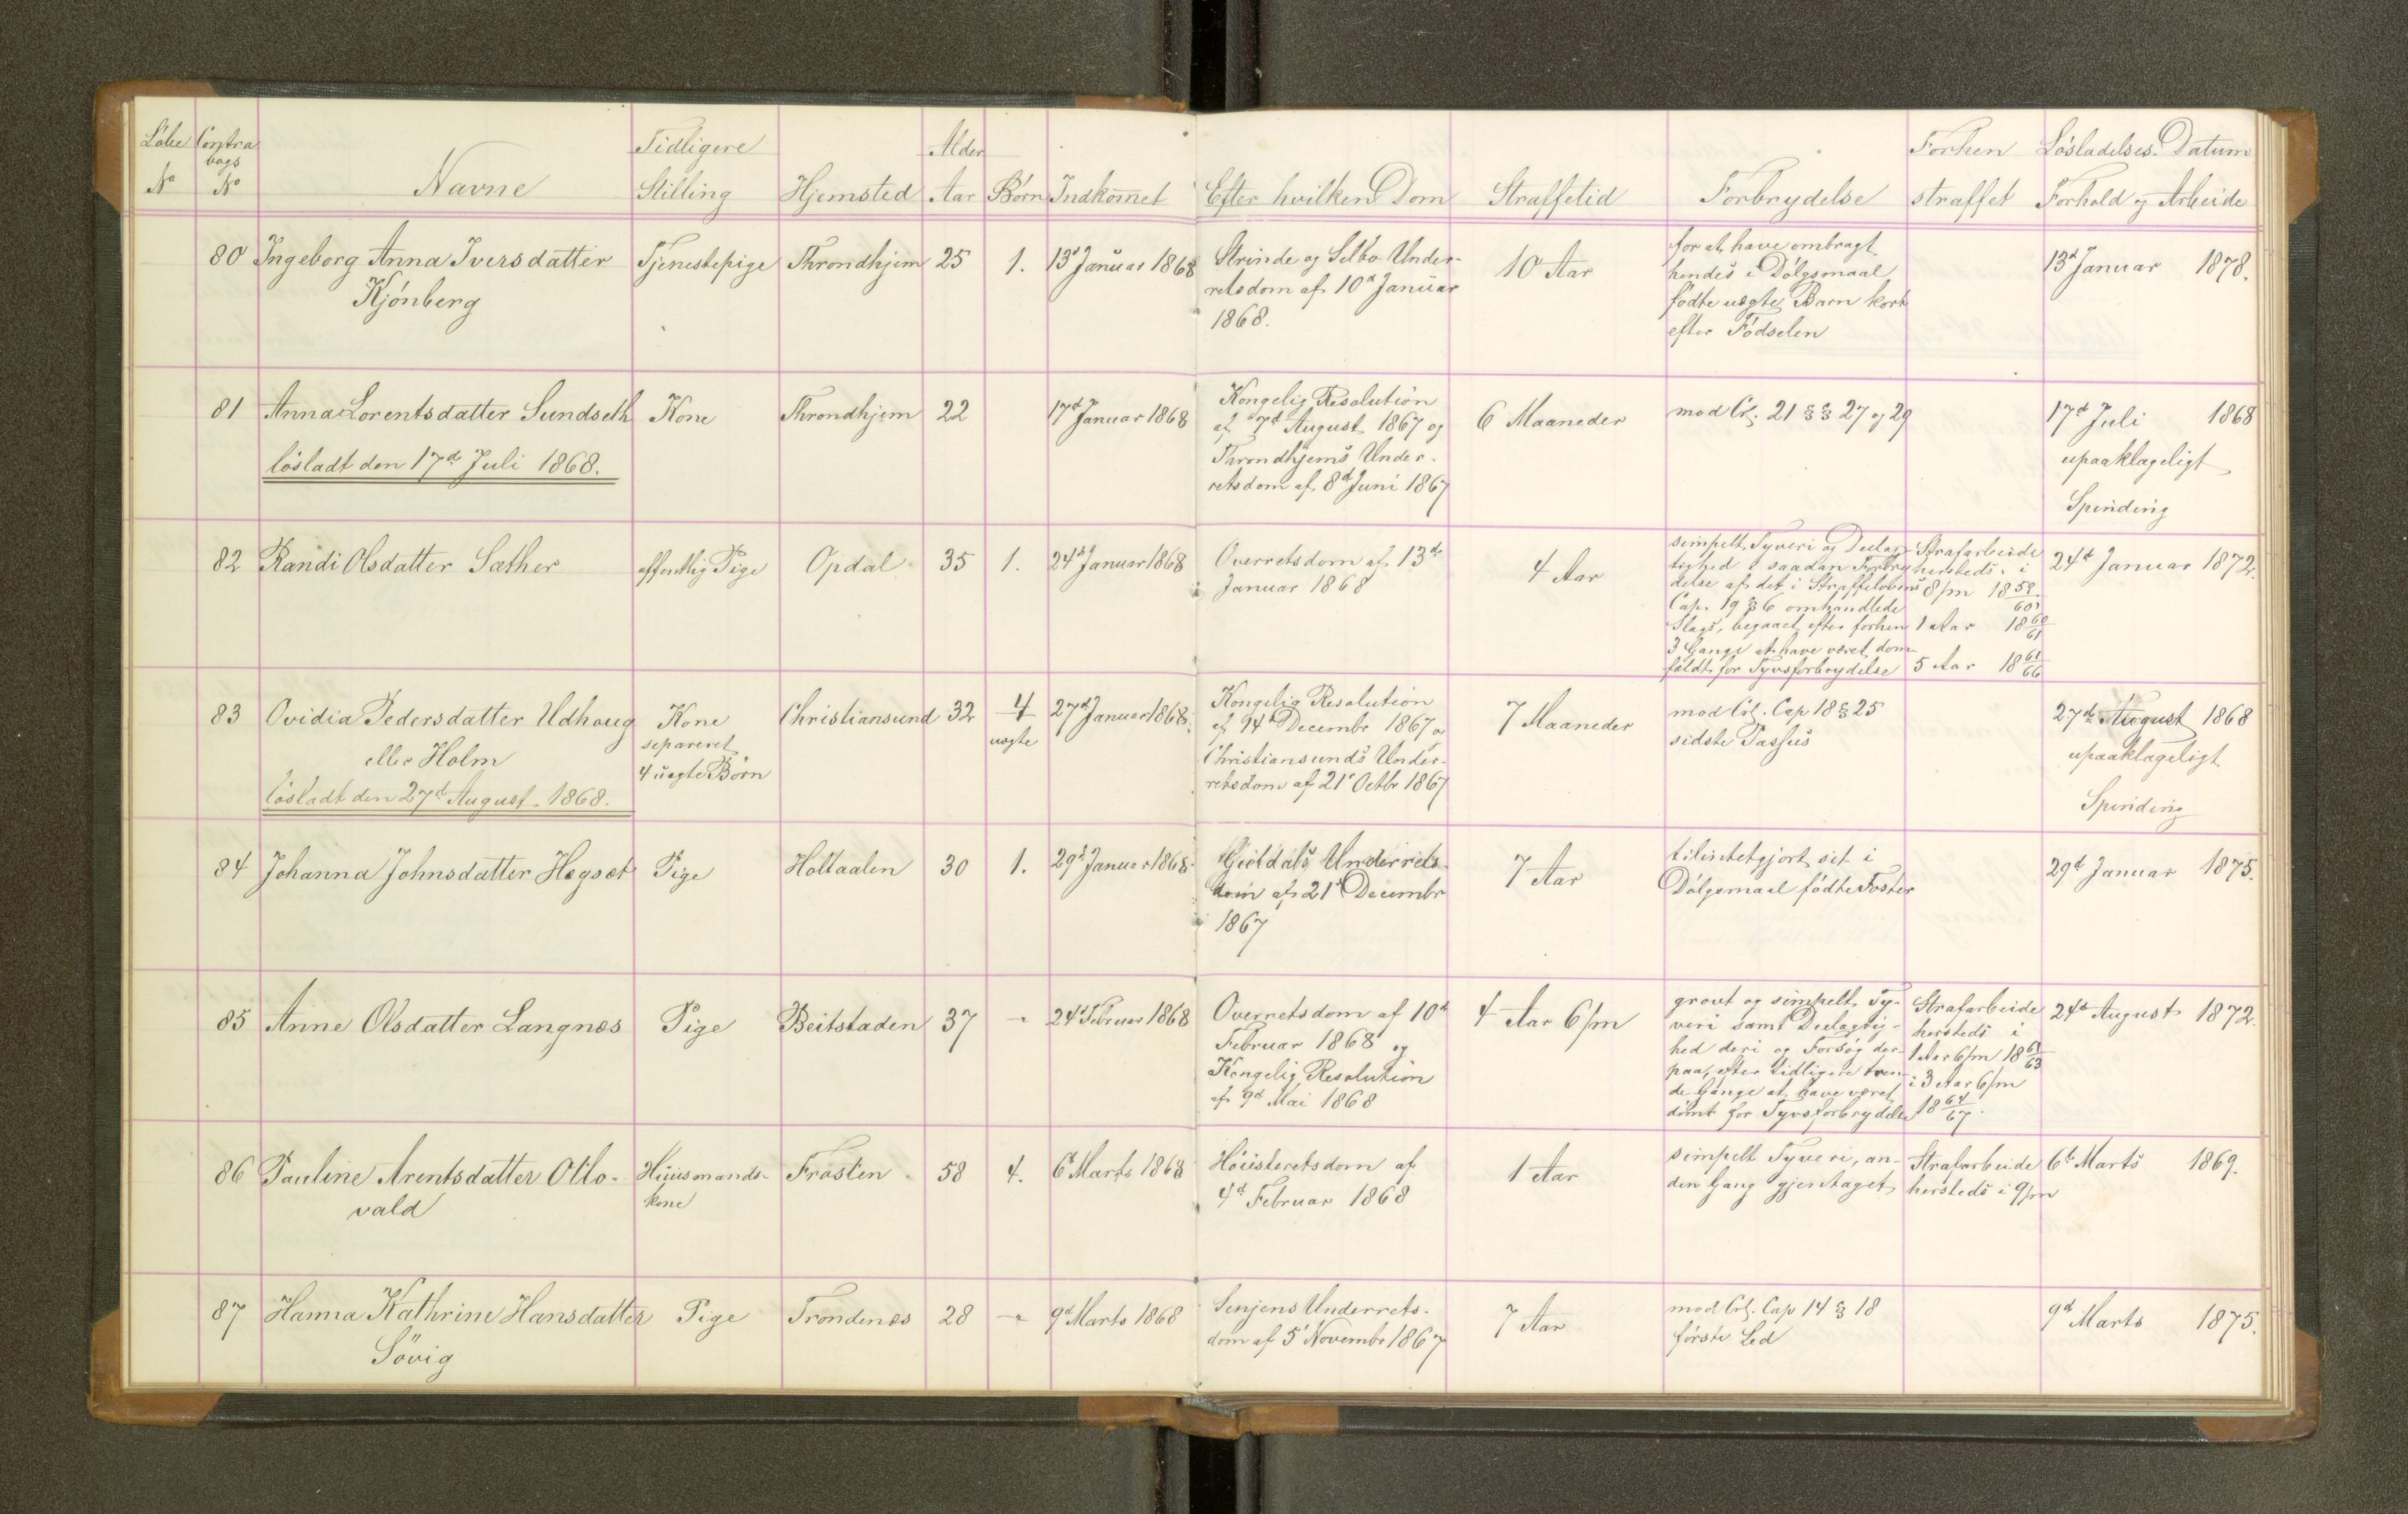 Løbe No Contra bogs No Navne Tidligere Stilling Hjemsted Alder Aar Børn Indkom̅et Efter hvilken Dom Straffetid Forbrydelse Forhen straffet Løsladelses Datum Forhold og Arbeide
80 Ingeborg Anna Iversdatter
Kjönberg
Tjenestepige Throndhjem 25 1. 13d Januar 1868
Strinde og Selbo Under-
retsdom af 10d Januar
1868.
10 Aar
for at have ombragt
hendes i Dölgsmaal
fødte uægte Barn kort
efter Fødselen
13d Januar 1878.
81 Anna Lorentsdatter Sundseth
løsladt den 17d Juli 1868.
Kone Throndhjem 22 17d Januar 1868
Kongelig Resolution
af 7d August 1867 og
Throndhjems Under-
retsdom af 8d Juni 1867
6 Maaneder
mod Crl. 21 §§ 27 og 29
17d Juli 1868
upaaklageligt
Spinding
82 Randi Olsdatter Sæther
offentlig Pige Opdal 35 1. 24d Januar 1868
Overretsdom af 13de
Januar 1868
4 Aar
simpelt Tyveri og Deelag-
tighed i saadan Forbry-
delse af det i Straffelovens
Cap. 19 § 6 omhandlede
Slags, begaaet efter forhen
3 Gange at have været dom-
fældt for Tyvsforbrydelse
Strafarbeide
hersteds i
8/m 18 59/60
1 Aar 18 60/61
5 Aar 18 61/66
24d Januar 1872.
83 Ovidia Pedersdatter Udhoug
eller Holm
løsladt den 27d August 1868.
Kone
separeret
4 uægte Børn
Christiansund 32 4
uægte
27d Januar 1868.
Kongelig Resolution
af 14d Decembr 1867 og
Christiansunds Under-
retsdom af 21d Octbr 1867
7 Maaneder
mod Crl. Cap 18 § 25
sidste Passus
27d August 1868
upaaklageligt
Spinding
84 Johanna Johnsdatter Hegset
Pige Holtaalen 30 1. 29d Januar 1868.
Underrets-
dom af 21d Decembr
1867
7 Aar
tilintetgjort sit i
Dølgsmaal fødte Foster
29d Januar 1875.
85 Anne Olsdatter Langnes
Pige Beitstaden 37 - 24d Februar 1868
Overretsdom af 10d
Februar 1868 og
Kongelig Resolution
af 9d Mai 1868
4 Aar 6/m
grovt og simpelt Ty-
veri samt Deelagtig-
hed deri og Forsøg der-
paa, efter tidligere tven-
de Gange at have været
dømt for Tyvsforbrydelse
Strafarbeide
hersteds i
1 Aar 6/m 18 61/63
i 3 Aar 6/m
18 64/67.
24d August 1872.
86 Pauline Arentsdatter Otlo-
vald
Huusmands-
kone
Frosten 58 4. 6d Marts 1868
Høiesteretsdom af
4d Februar 1868
1 Aar
simpelt Tyveri, an-
den Gang gjentaget
Strafarbeide
hersteds i 9/m
6d Marts 1869.
87 Hanna Kathrine Hansdatter
Sövig
Pige Trondenes 28 - 9d Marts 1868
Senjens Underrets-
dom af 5d Novembr 1867
7 Aar
mod Crl. Cap 14 § 18
første Led
9d Marts 1875.